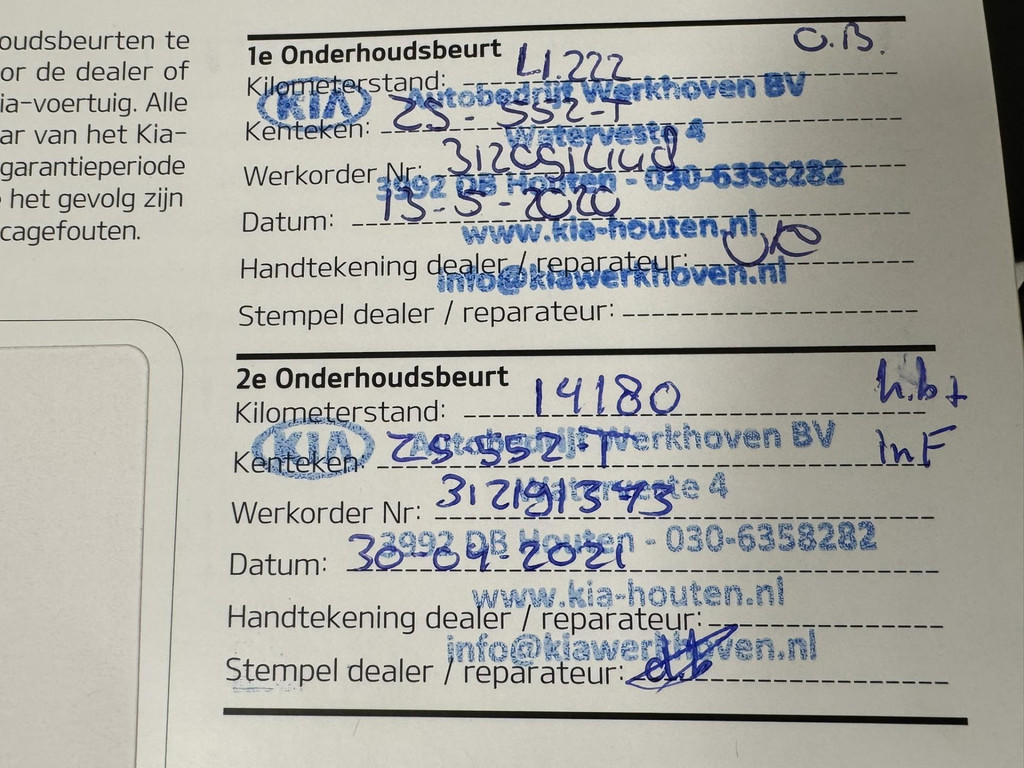 oudsbeurten te
or de dealer of
ia-voertuig. Alle
ar van het Kia-
garantieperiode
het gevolg zijn
cagefouten.
1e Onderhoudsbeurt O.B.
Kilometerstand: 41.222
KIA Autobedrijf Werkhoven BV
Kenteken: ZS-552-T
Waterveste 4
Werkorder Nr:
3992 DB Houten - 030-6358282
Datum: 13-5-2020
www.kia-houten.nl
Handtekening dealer / reparateur:
info@kiawerkhoven.nl
Stempel dealer / reparateur:
2e Onderhoudsbeurt
Kilometerstand: 14180
KIA Autobedrijf Werkhoven BV
Kenteken: ZS-552-T
Waterveste 4
Werkorder Nr: 31291373
3992 DB Houten - 030-6358282
Datum: 30-04-2021
www.kia-houten.nl
Handtekening dealer / reparateur:
info@kiawerkhoven.nl
Stempel dealer / reparateur: